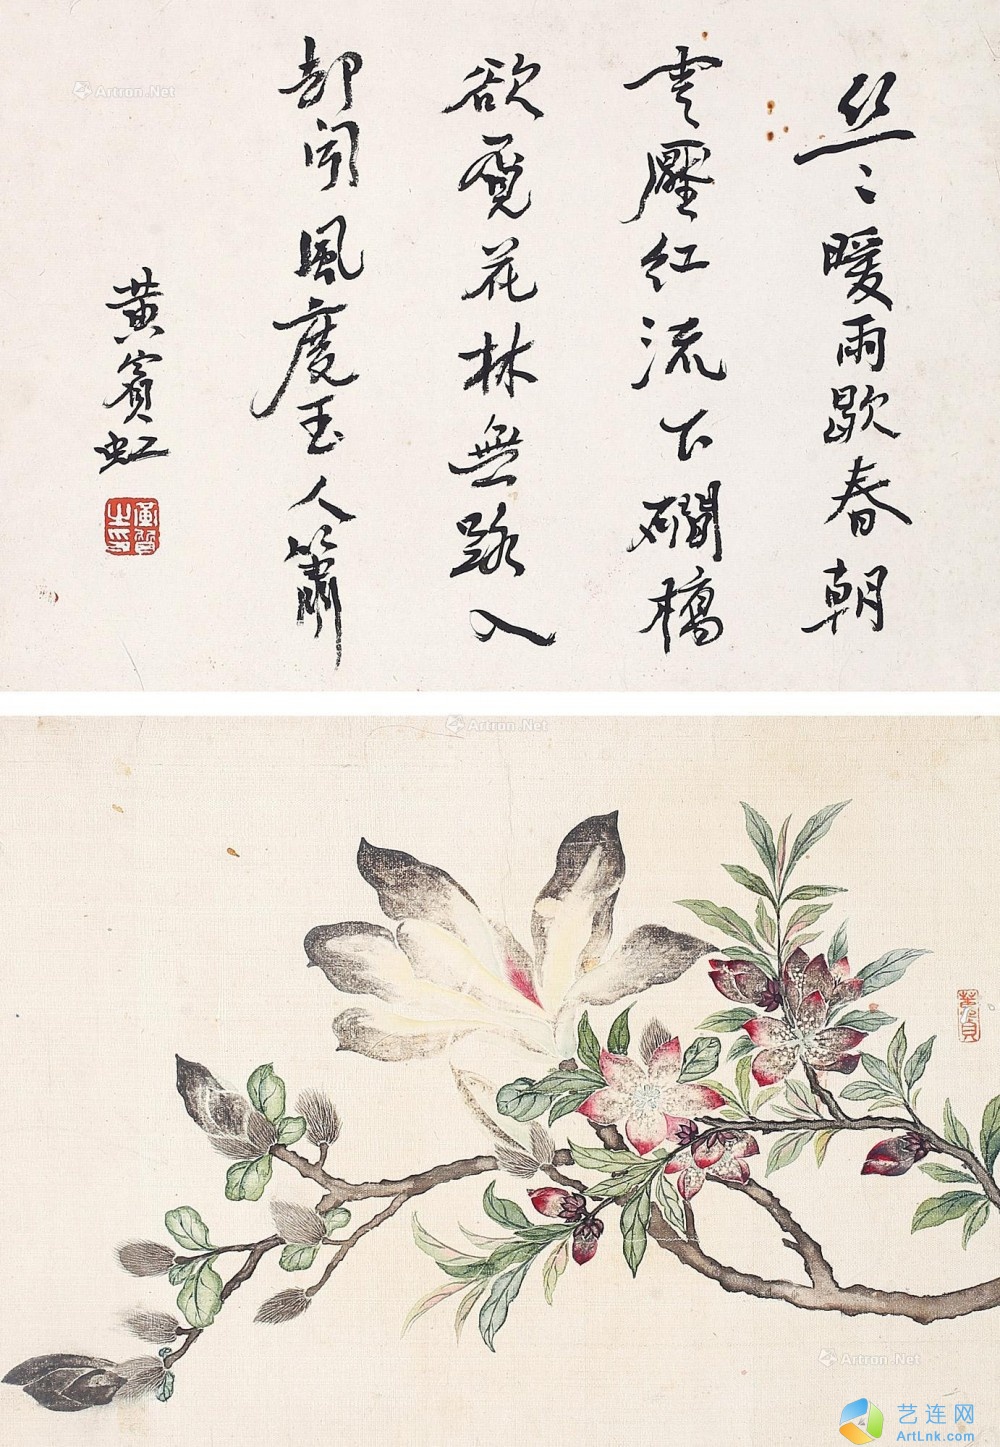 絲〻暖雨歇春朝
雲壓紅流下磵橋
欲覓花林無路入
却聞風度玉人簫
黃賓虹
黃質之印
Artron.Net
Artron.Net
Artron.Net
艺连网
ArtLnk.com